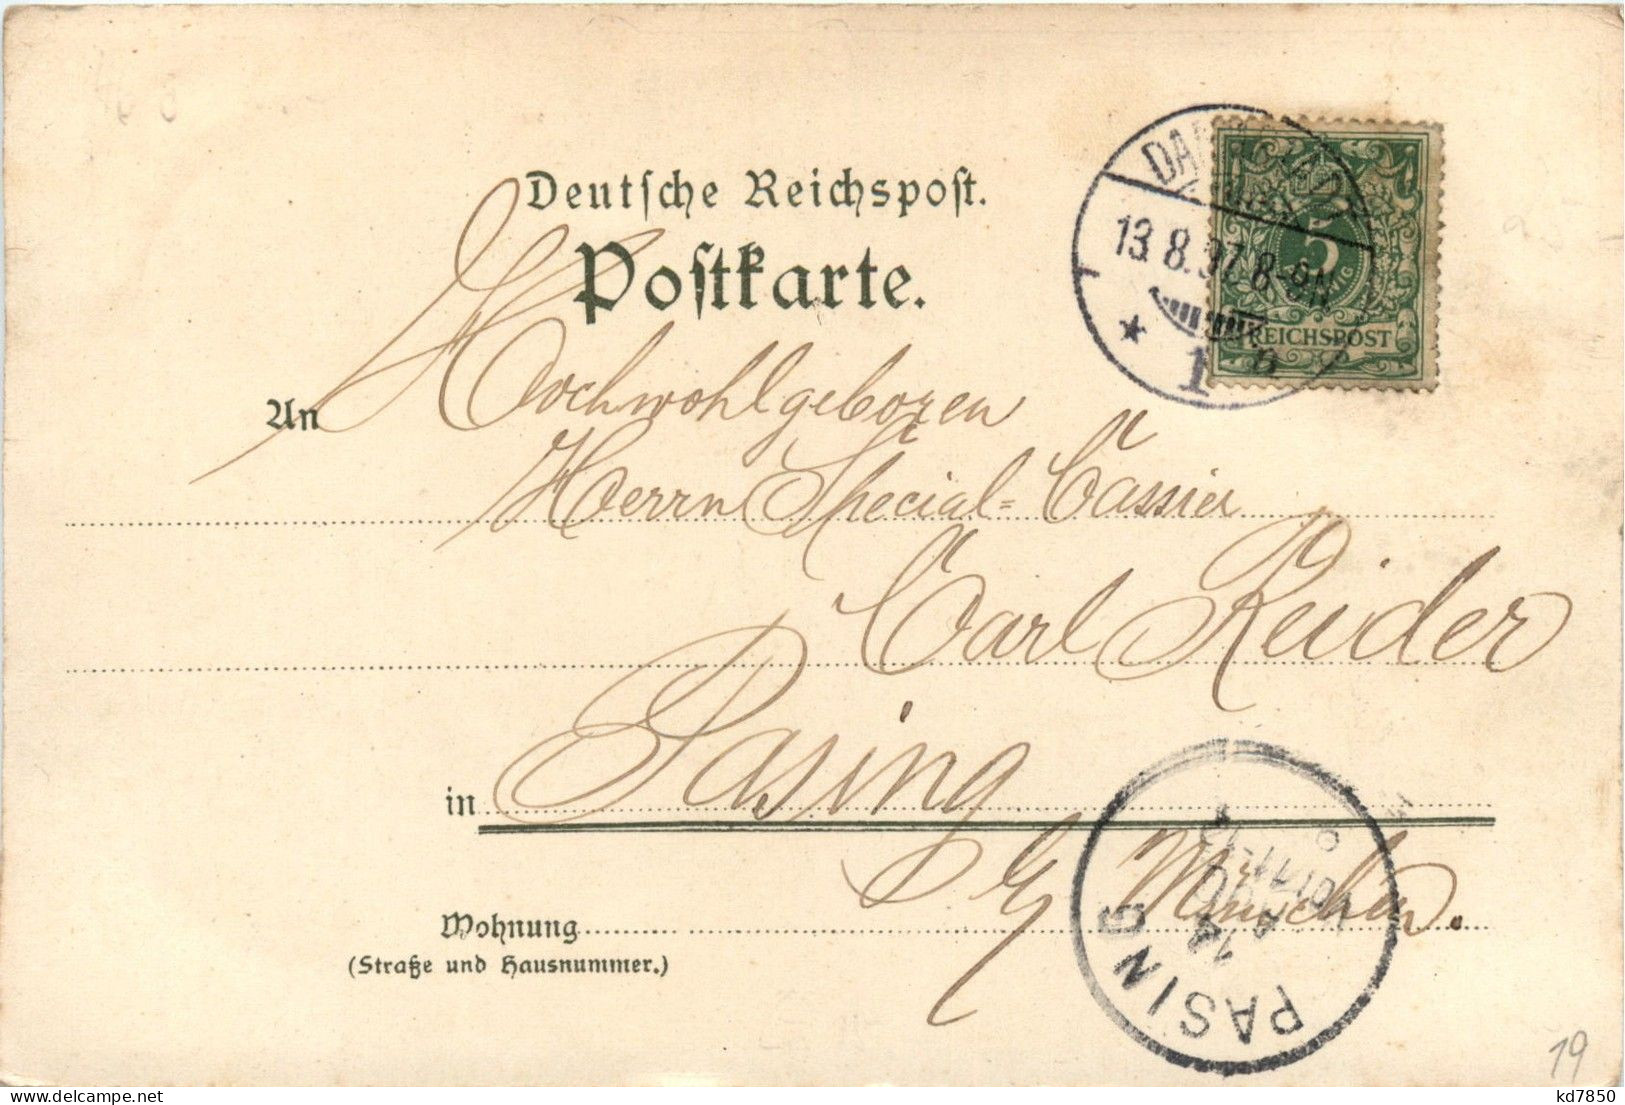 Deutsche Reichspost.
Postkarte.
DARMSTADT
13.8.97. 8-9N
1
5
REICHSPOST
An Hochwohlgeboren
Herrn Special=Cassier
Carl Reider
in Pasing
b/ München.
Wohnung
(Straße und Hausnummer.)
PASING
14
19
www.delcampe.net
kd7850